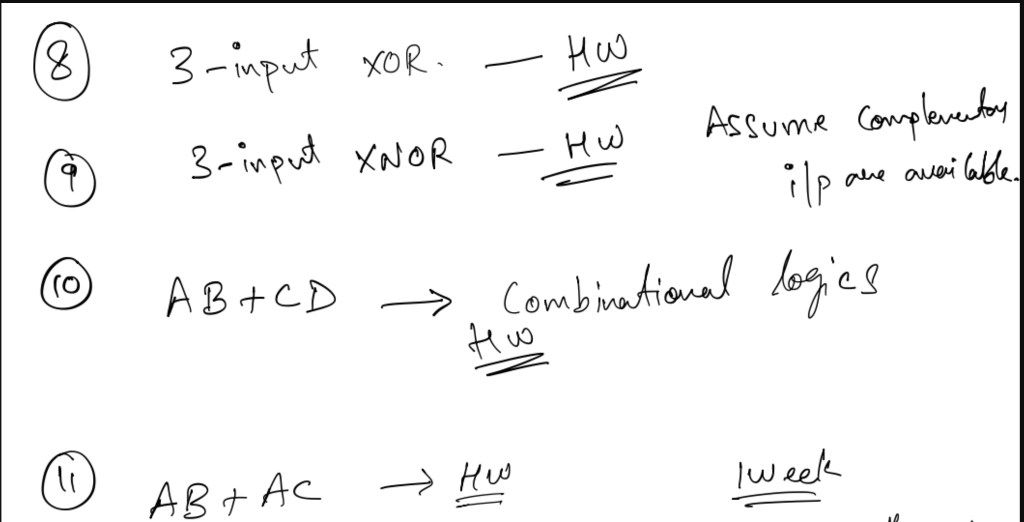 8 3-input XOR. — HW
9 3-input XNOR — HW
Assume Complementary
i/p are available.
10 AB+CD → Combinational logics
HW
11 AB + AC → HW 1 week